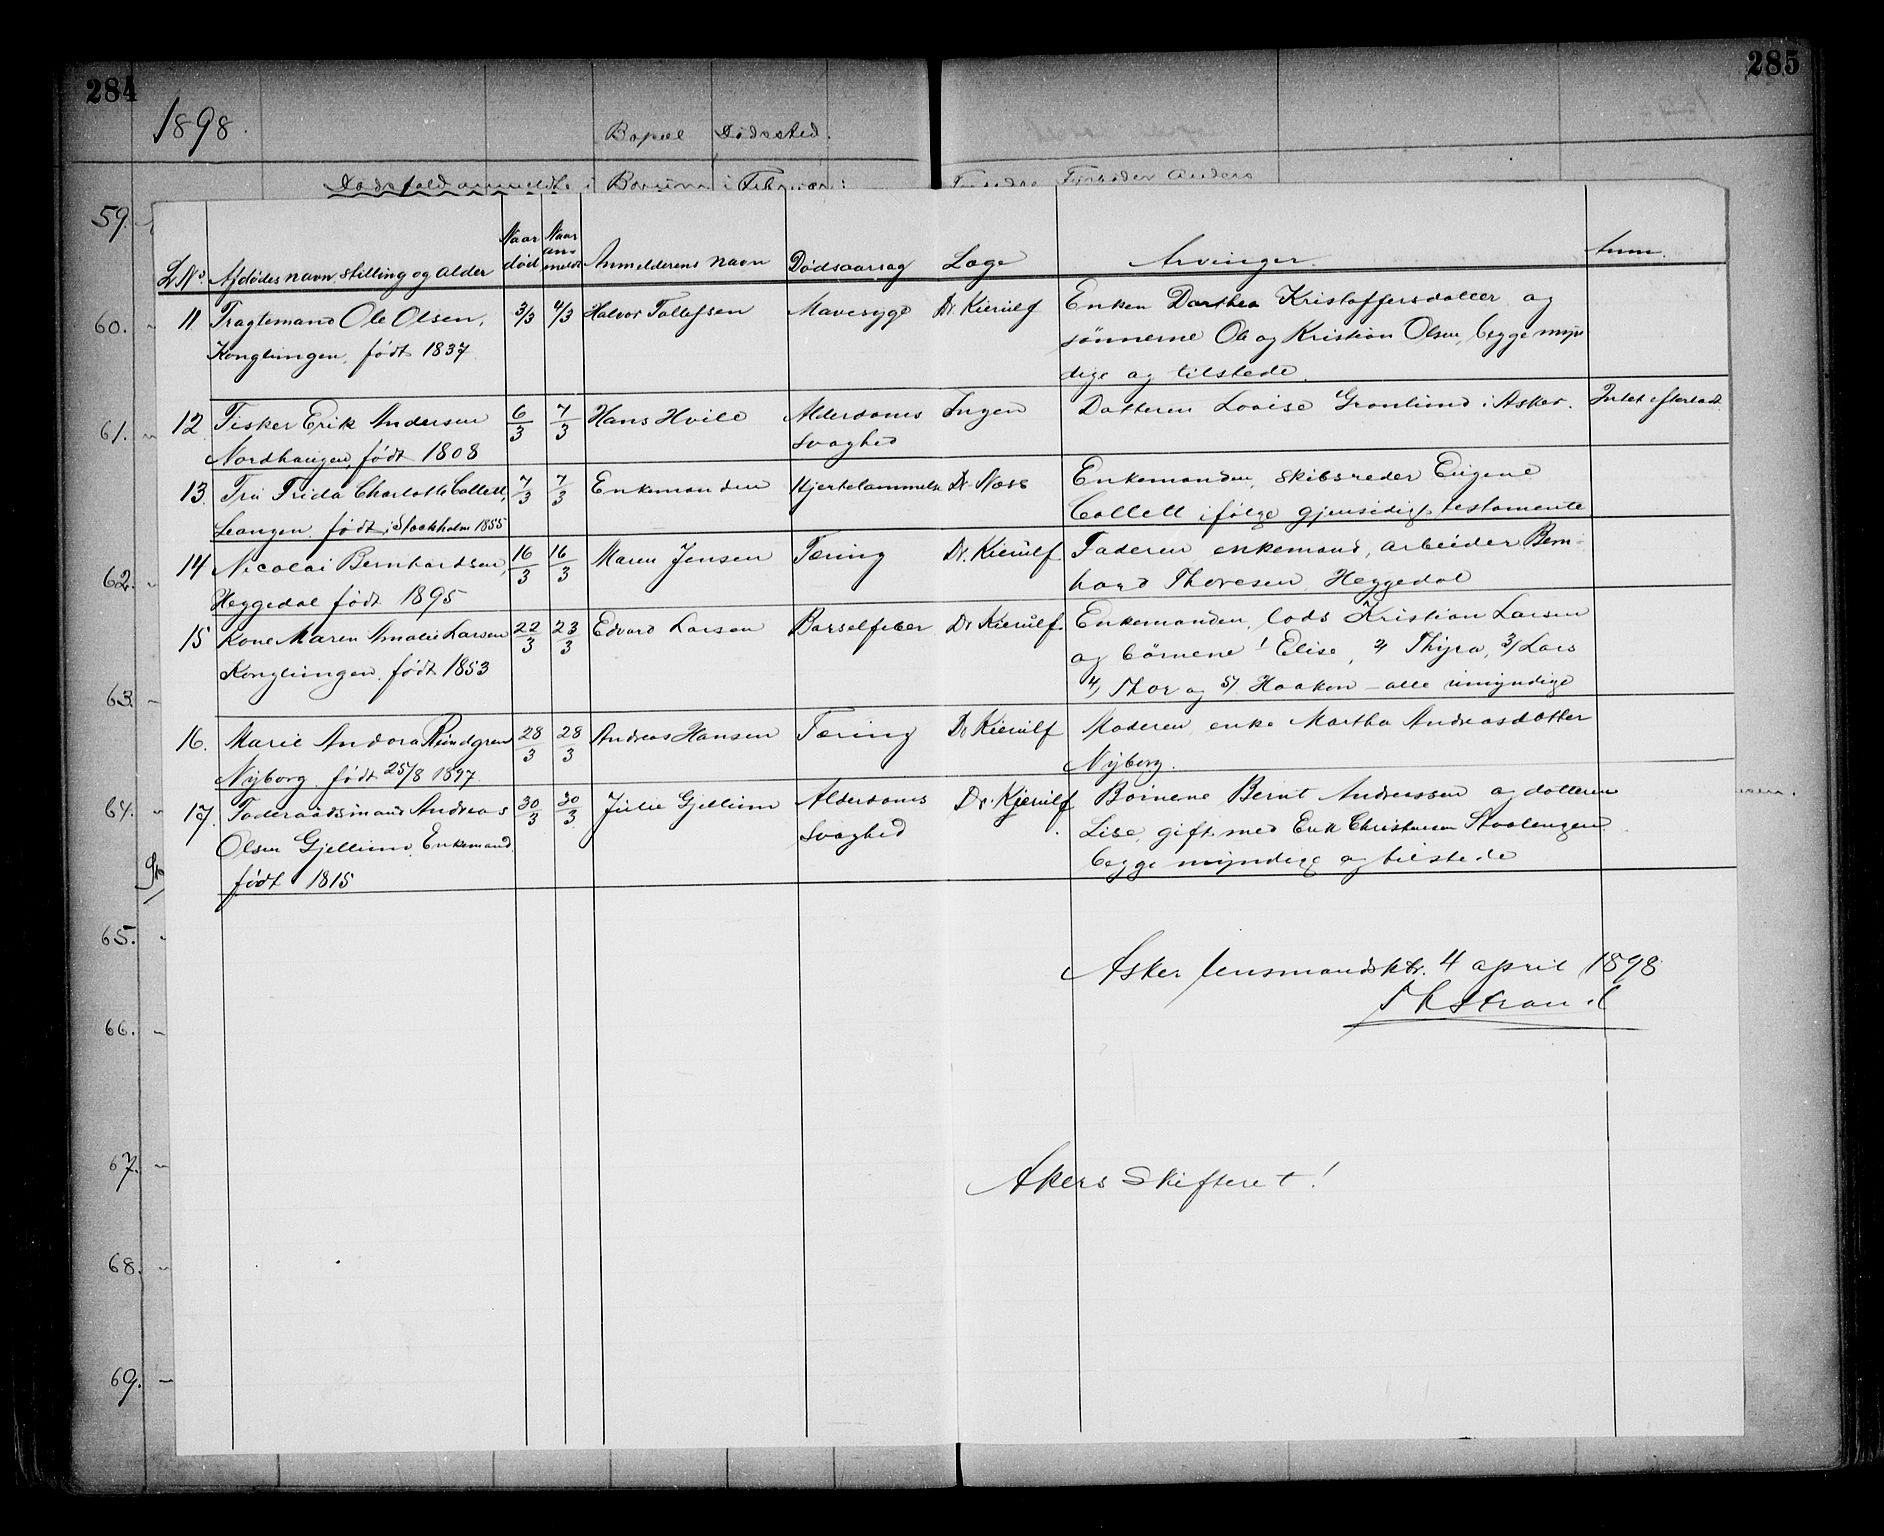 284
285
1898.
Bopæl Dødssted.
Dødsfald anmeldte i Bærum i Februar:
59.
60.
61.
62.
63.
64.
65.
66.
67.
68.
69.
L No. Afdødes navn, stilling og alder Naar død Naar anmeldt Anmelderens navn Dødsaarsag Læge Arvinger. Anm.
11 Fragtemand Ole Olsen, 3/3 4/3 Halvor Tollefsen Mavesyge Dr. Kierulf Enken Dorthea Kristoffersdatter og
Konglungen, født 1837 sønnerne Ole og Kristian Olsen, begge myn
dige og tilstede.
12. Fisker Erik Andersen 6/3 7/3 Hans Hvile Alderdoms Ingen Datteren Lovise Grønlund i Asker. Intet efterladt
Nordhaugen, født 1808 svaghed
13. Fru Frida Charlotte Collett, 7/3 7/3 Enkemanden Hjertelammelse Dr. Næss Enkemanden, skibsreder Eugene
Leangen født i Stockholm 1855 Collett ifølge gjensidigt testamente
14 Nicolai Bernhardsen, 16/3 16/3 Maren Jensen Tæring Dr. Kierulf Faderen enkemand, arbeider Bern-
Heggedal født 1895 hard Thoresen, Heggedal
15 Kone Maren Amalie Larsen 22/3 23/3 Edvard Larsen Barselfeber Dr Kierulf Enkemanden, lods Kristian Larsen
Konglungen. født 1853 og børnene 1 Elise, 2/ Thyra, 3/ Lars
4/ Thor og 5/ Haakon - alle umyndige
16. Marie Andora Rundgren 28/3 28/3 Andreas Hansen Tæring Dr Kierulf Moderen, enke Martha Andreasdatter
Nyborg. født 25/8 1897. Nyborg.
17. Føderaadsmand Andreas 30/3 30/3 Julie Gjellum Alderdoms Dr. Kjerulf Børnene Bernt Andreassen og datteren
Olsen Gjellum, Enkemand svaghed Lise, gift med Erik Christensen
født 1815 begge myndige og tilstede
Asker lensmandsktr. 4 april 1898
Th Strand
Akers Skifteret!